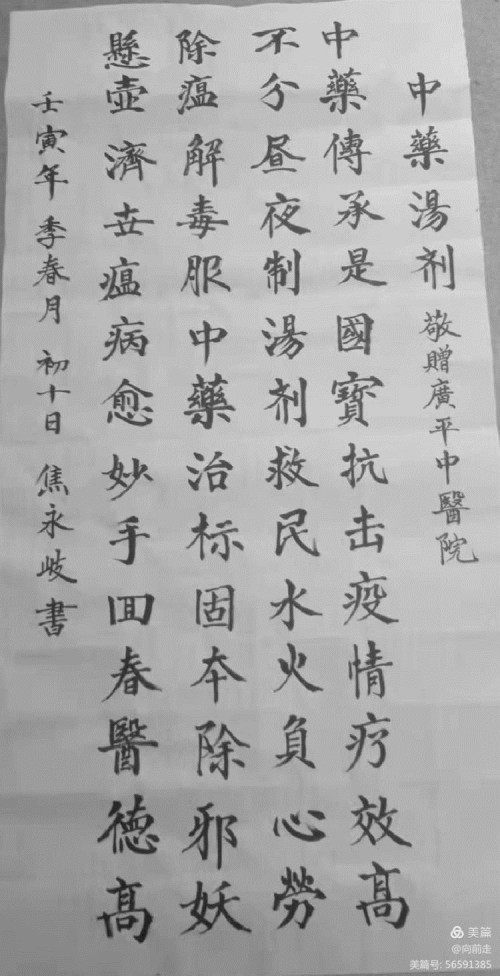 中藥湯剂 敬贈廣平中醫院
中藥傳承是國寶抗击疫情疗效高
不分昼夜制湯剂救民水火負心勞
除瘟解毒服中藥治标固本除邪妖
懸壺濟世瘟病愈妙手回春醫德高
壬寅年季春月 初十日 焦永岐書
美篇
@向前走
美篇号: 56591385